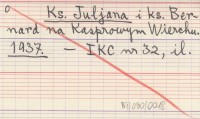 Ks. Juljana i ks. Ber-
nard na Kasprowym Wierchu.
1937. — IKC nr 32, il.